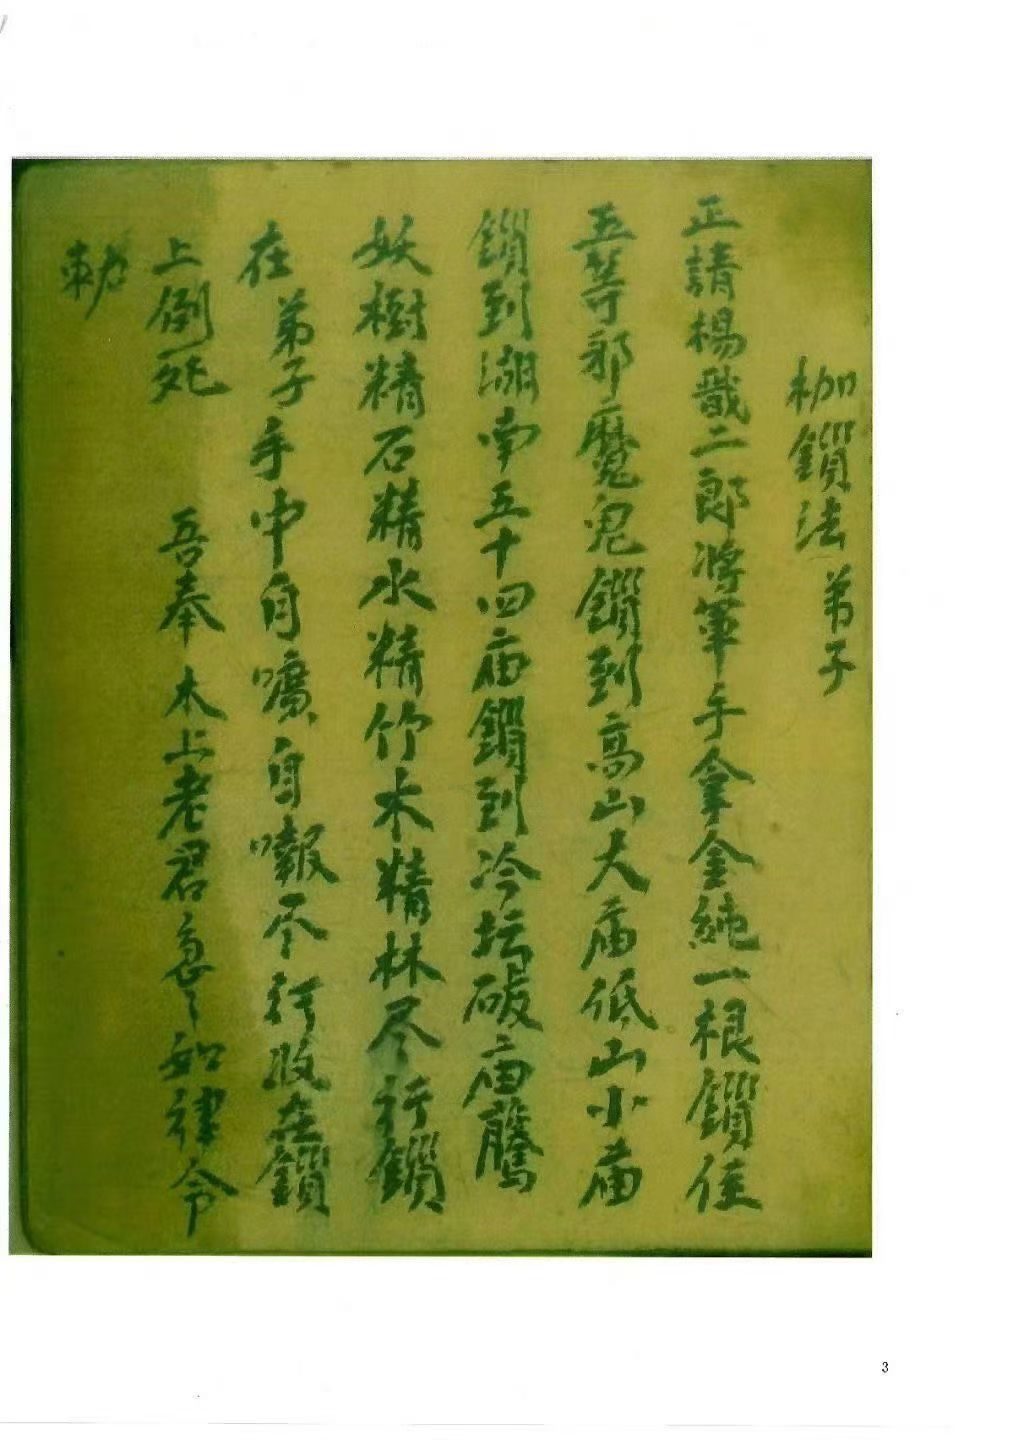 枷鎖法 弟子
正請楊戩二郎將軍手拿金純一根鎖住
五等邪魔鬼鎖到高山大庙低山小庙
鎖到湖南五十四庙鎖到冷坛破庙
妖樹精石精水精竹木精林尽行鎖
在弟子手中自 自 尽行收在鎖
上倒死 吾奉太上老君急〻如律令
勅
3